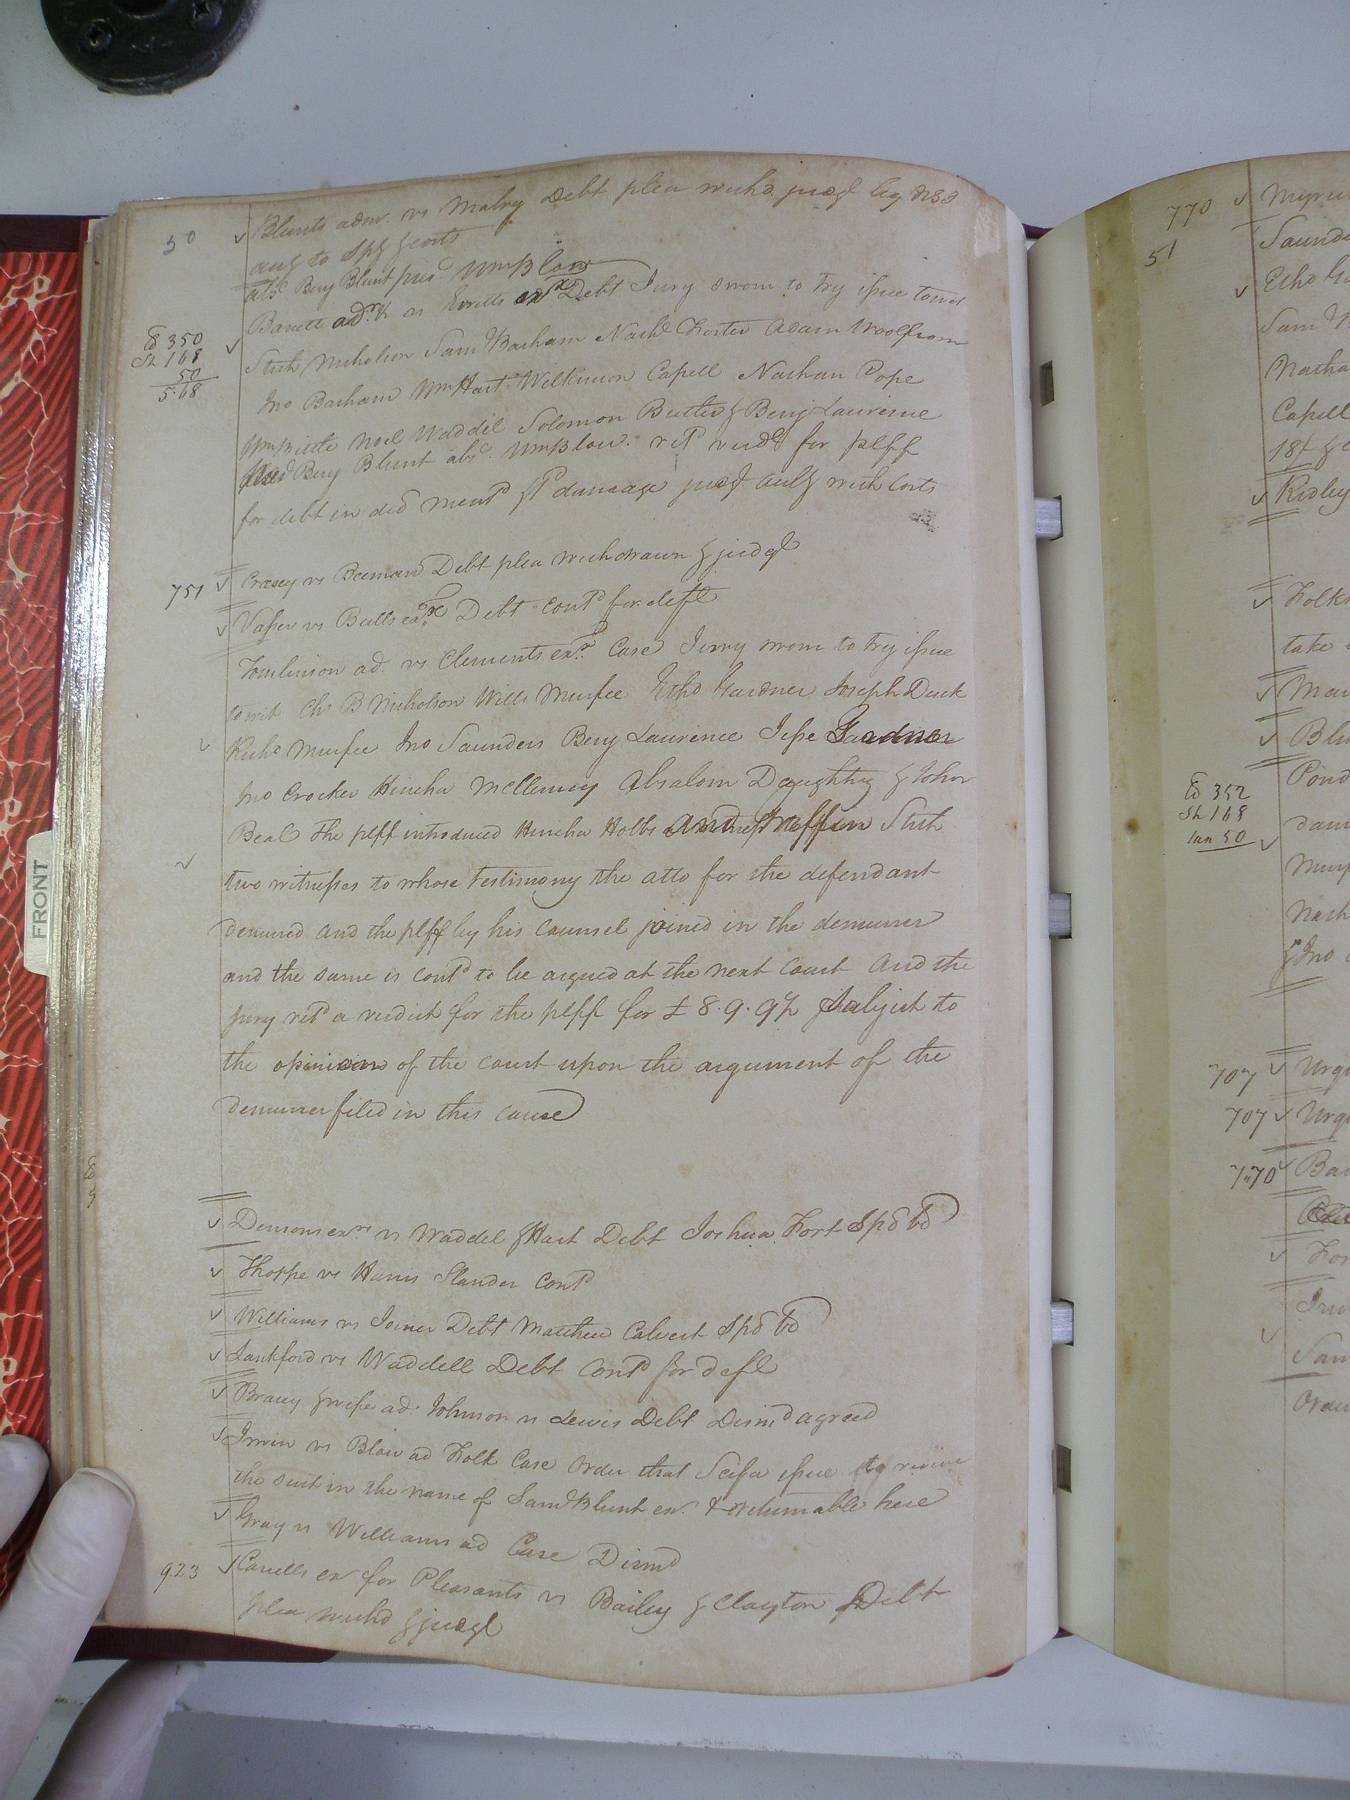 50 Blunts admr. vs Malry Debt plea withd. judgt
and to Spg & costs
abst Benj Blunt pres Wm Blow
Barrett admr vs Exr Debt Jury sworn to try issue towit
E 350
Sh 168
50
5.68
Nicholson Sam Barham Nath Foster Adam Woolfrom
Jno Barham Wm Hart Wilkinson Capell Nathan Pope
Noel Waddil Solomon Butler & Benj Laurence
Benj Blunt abst. Wm Blow. retd verdt for plff
for debt in decd ment 1d damage judgt with Costs
751 Crasey vs Beeman Debt plea withdrawn & judgt
Vasser vs Bulls exx Debt contd for deft
Tomlinson ad. vs Clements exr. Case Jurry sworn to try issue
towit Chs B Nicholson Wills Murfee Ethd Gardner Joseph Duck
Richd Murfee Jno Saunders Benj Laurence Jesse Gardner
Jno Crocker Hincha McClemoy Absalom Daughtry & John
Beal The plff introduced Hincha Holbs
two witnesses to whose testimony the atto for the defendant
demured and the plff by his Counsel joined in the demurrer
and the same is contd to be argued at the next Court And the
jury retd a verdict for the plff for £ 8.9.9½ Subject to
the opinion of the court upon the argument of the
demurrer filed in this cause
Demsons exrs vs Waddel & Hart Debt Joshua Fort Spd bd
Thorpe vs Harris Slander Contd
Williams vs Joiner Debt Matthew Calvert Spd bd
Lankford vs Waddell Debt Contd for deft
Bracy & wife ad. Johnson vs Lewis Debt Dismd agreed
Irwin vs Blow ad Folk Case Order that Scifa issue to revive
the suit in the name of Saml Blunt ex. & returnable here
Gray vs Williams ad Case Dismd
923 Cavells ex for Pleasants vs Bailey & Clayton Debt
plea withd & judgt
FRONT
770
51
Saund
Ethd Ga
Sam B
Natha
Capell
18/ & C
Ridley
Folks
take
Mar
Blu
Pond
E 352
Sh 168
Tax 50
dam
Murf
Nath
& Jno
707 Urqu
707 Urqu
770 Bar
For
Irw
Sam
Order